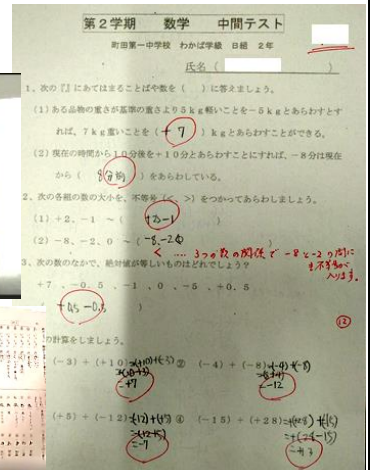 第2学期 数学 中間テスト
町田第一中学校 わかば学級 日組 2年
氏名( )
1、次の『』にあてはまることばや数を( )に答えましょう。
(1)ある品物の重さが基準の重さより5kg軽いことを-5kgとあらわすとす
れば、7kg重いことを( +7 )kgとあらわすことができる。
(2)現在の時間から10分後を+10分とあらわすことにすれば、-8分は現在
から( 8分前 )をあらわしている。
2、次の各組の数の大小を、不等号(<、>)をつかってあらわしましょう。
(1)+2、-1 ~ ( +2>-1 )
(2)-8、-2、0 ~ ( -8、-2<0 )
< .... 3つの数の関係で -8と-2の間に
も不等号が
入ります。
3、次の数のなかで、絶対値が等しいものはどれでしょう?
+7 、-0.5 、-1 、0 、-5 、+0.5
( +0.5 -0.5 )
12
の計算をしましょう。
(-3)+(+10) =(+10)+(-3) ② (-4)+(-8) =(-4)+(-8)
=+7 =-12
(+5)+(-12) =(-12)+(+5) ④ (-15)+(+28)
=-7 =+13